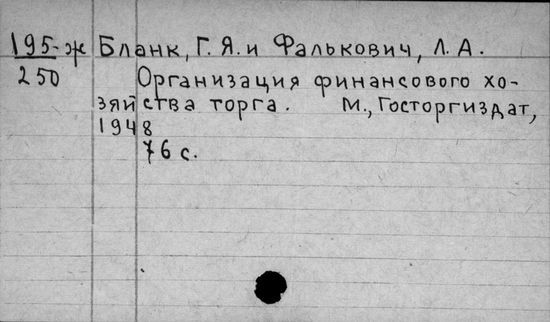 195-ж Бланк, Г. Я. и Фалькович, Л. А.
250 Организация финансового хо-
зяйства торга. М., Госторгиздат,
1948
76 с.